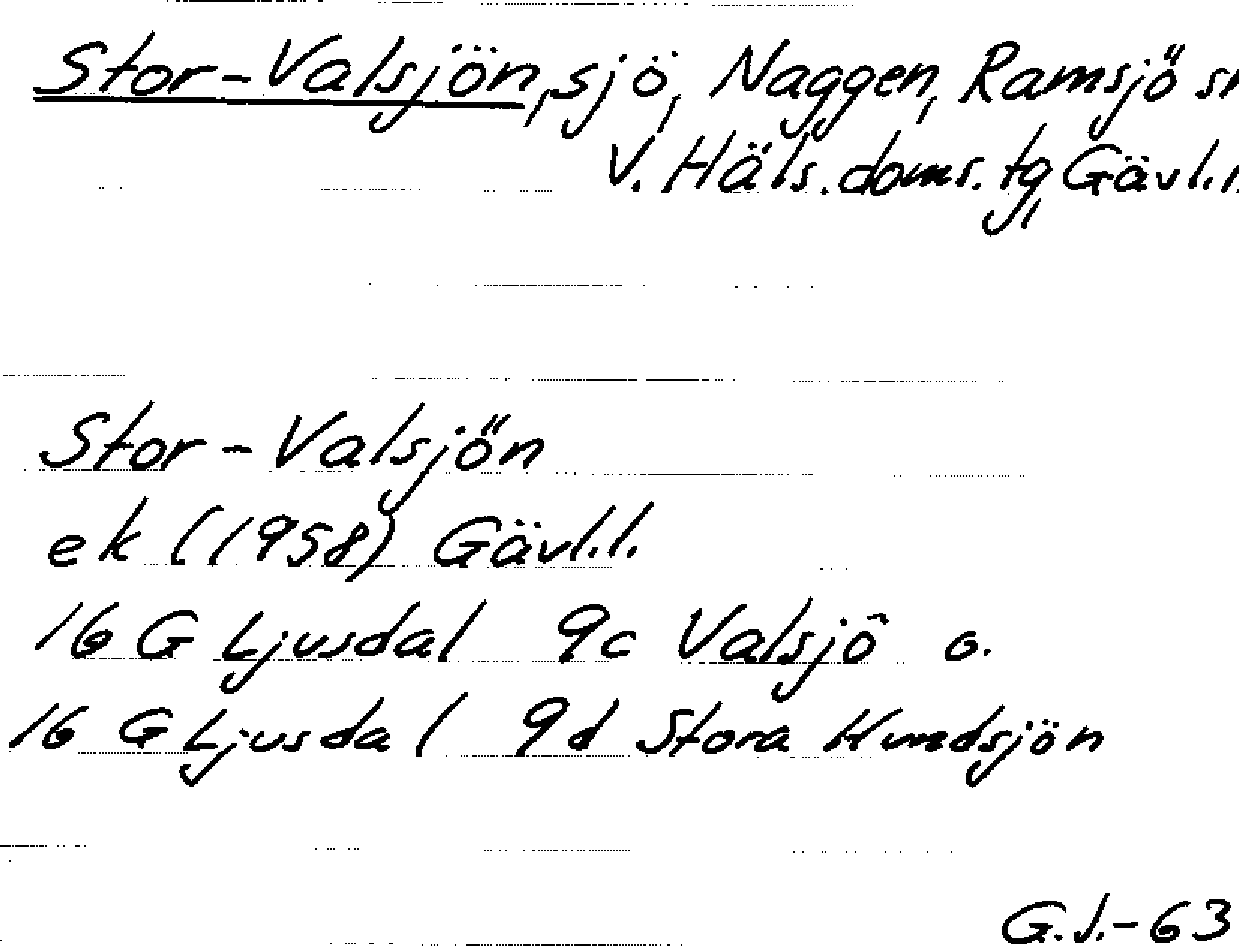 Stor-Valsjön, sjö, Naggen, Ramsjö sn
V. Häls. doms. tg, Gävl.l.
Stor-Valsjön
ek (1958) Gävl.l.
16 G Ljusdal 9c Valsjö o.
16 G Ljusdal 9d Stora Hundsjön
G.J.-63